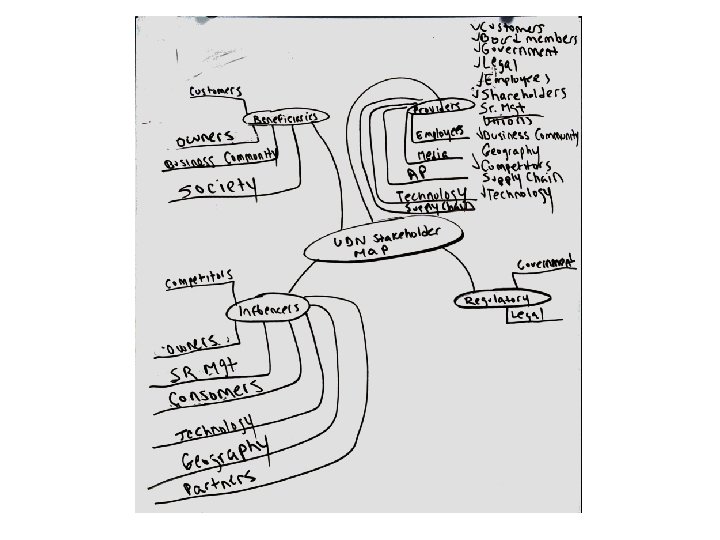 ✓Customers
✓Board members
✓Government
✓Legal
✓Employees
✓Shareholders
Sr. Mgt
Unions
✓Business Community
Geography
✓Competitors
Supply Chain
✓Technology
Customers
Beneficiaries
Owners
Business Community
Society
Providers
Employees
Media
AP
Technology
Supply Chain
UDN Stakeholder
Map
Government
Regulatory
Legal
Competitors
Influencers
Owners
SR Mgt
Consomers
Technology
Geography
Partners